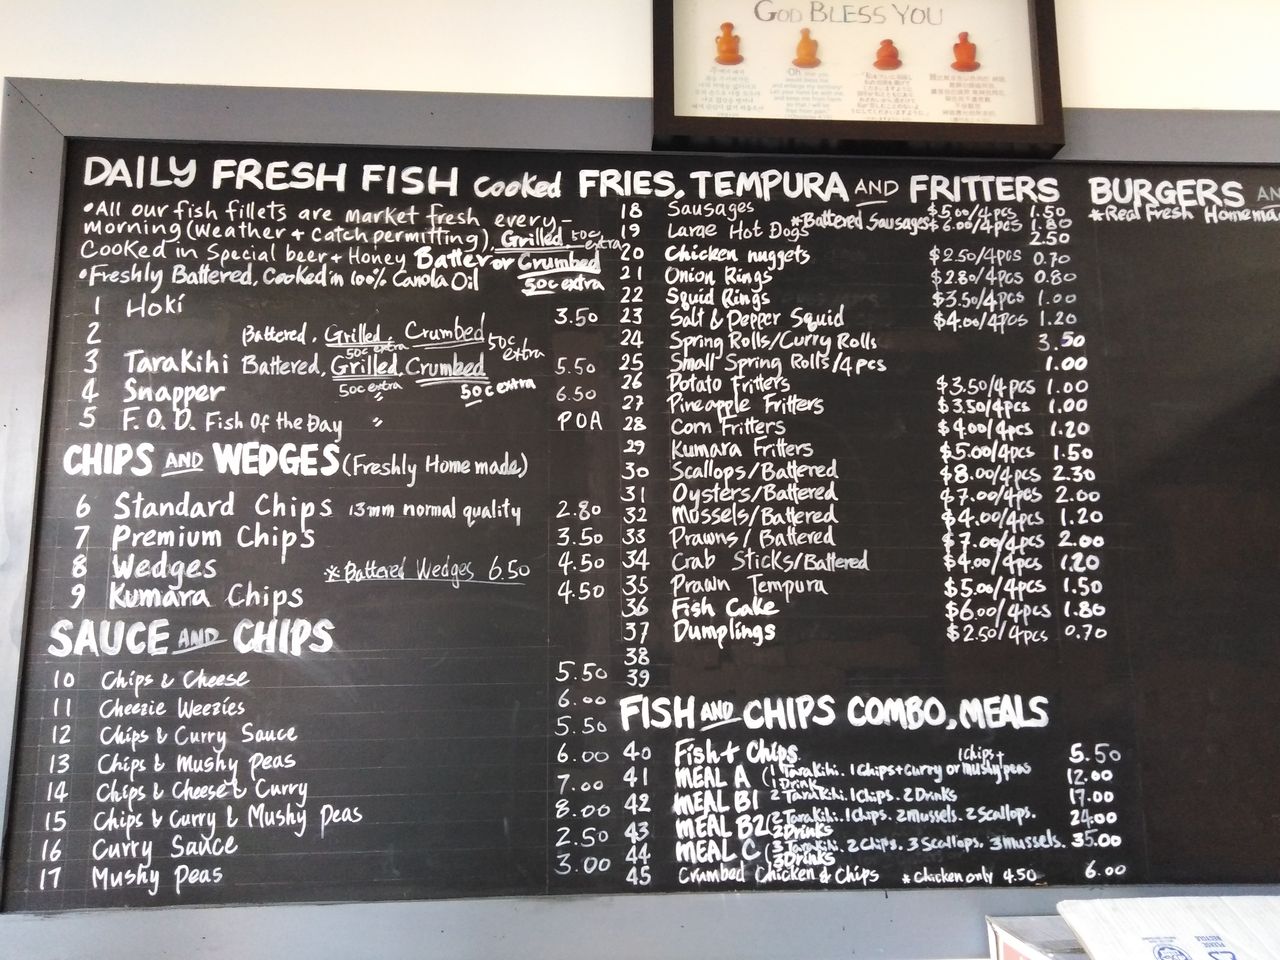 GOD BLESS YOU
DAILY FRESH FISH cooked
•All our fish fillets are market fresh every-
morning (weather + catch permitting). Grilled 50c extra
Cooked in Special beer + Honey Batter or Crumbed
50c extra
•Freshly Battered, Cooked in 100% Canola Oil
1 Hoki 3.50
2 Battered, Grilled, Crumbed
50c extra 50c extra
3 Tarakihi Battered, Grilled, Crumbed 5.50
50c extra 50c extra
4 Snapper " 6.50
5 F.O.D. Fish Of the Day " POA
CHIPS AND WEDGES (Freshly Home made)
6 Standard Chips 13mm normal quality 2.80
7 Premium Chips 3.50
8 Wedges *Battered Wedges 6.50 4.50
9 Kumara Chips 4.50
SAUCE AND CHIPS
10 Chips & Cheese 5.50
11 Cheezie Weezies 6.00
12 Chips & Curry Sauce 5.50
13 Chips & Mushy Peas 6.00
14 Chips & Cheese & Curry 7.00
15 Chips & Curry & Mushy Peas 8.00
16 Curry Sauce 2.50
17 Mushy Peas 3.00
FRIES, TEMPURA AND FRITTERS
18 Sausages $5.00/4pcs 1.50
19 Large Hot Dogs *Battered Sausages $6.00/4pcs 1.80
2.50
20 Chicken nuggets $2.50/4pcs 0.70
21 Onion Rings $2.80/4pcs 0.80
22 Squid Rings $3.50/4pcs 1.00
23 Salt & Pepper Squid $4.00/4pcs 1.20
24 Spring Rolls/Curry Rolls 3.50
25 Small Spring Rolls/4pcs 1.00
26 Potato Fritters $3.50/4pcs 1.00
27 Pineapple Fritters $3.50/4pcs 1.00
28 Corn Fritters $4.00/4pcs 1.20
29 Kumara Fritters $5.00/4pcs 1.50
30 Scallops/Battered $8.00/4pcs 2.30
31 Oysters/Battered $7.00/4pcs 2.00
32 Mussels/Battered $4.00/4pcs 1.20
33 Prawns/Battered $7.00/4pcs 2.00
34 Crab Sticks/Battered $4.00/4pcs 1.20
35 Prawn Tempura $5.00/4pcs 1.50
36 Fish Cake $6.00/4pcs 1.80
37 Dumplings $2.50/4pcs 0.70
38
39
FISH AND CHIPS COMBO, MEALS
40 Fish + Chips 5.50
41 MEAL A (1 Tarakihi. 1 Chips + Curry or mushy peas 12.00
1 Drink
42 MEAL B1 2 Tarakihi. 1 Chips. 2 Drinks 17.00
43 MEAL B2 (2 Tarakihi. 1 Chips. 2 mussels. 2 Scallops. 24.00
2 Drinks
44 MEAL C (3 Tarakihi. 2 Chips. 3 Scallops. 3 mussels. 35.00
3 Drinks
45 Crumbed Chicken & Chips *Chicken only 4.50 6.00
BURGERS AN
*Real Fresh Homemad